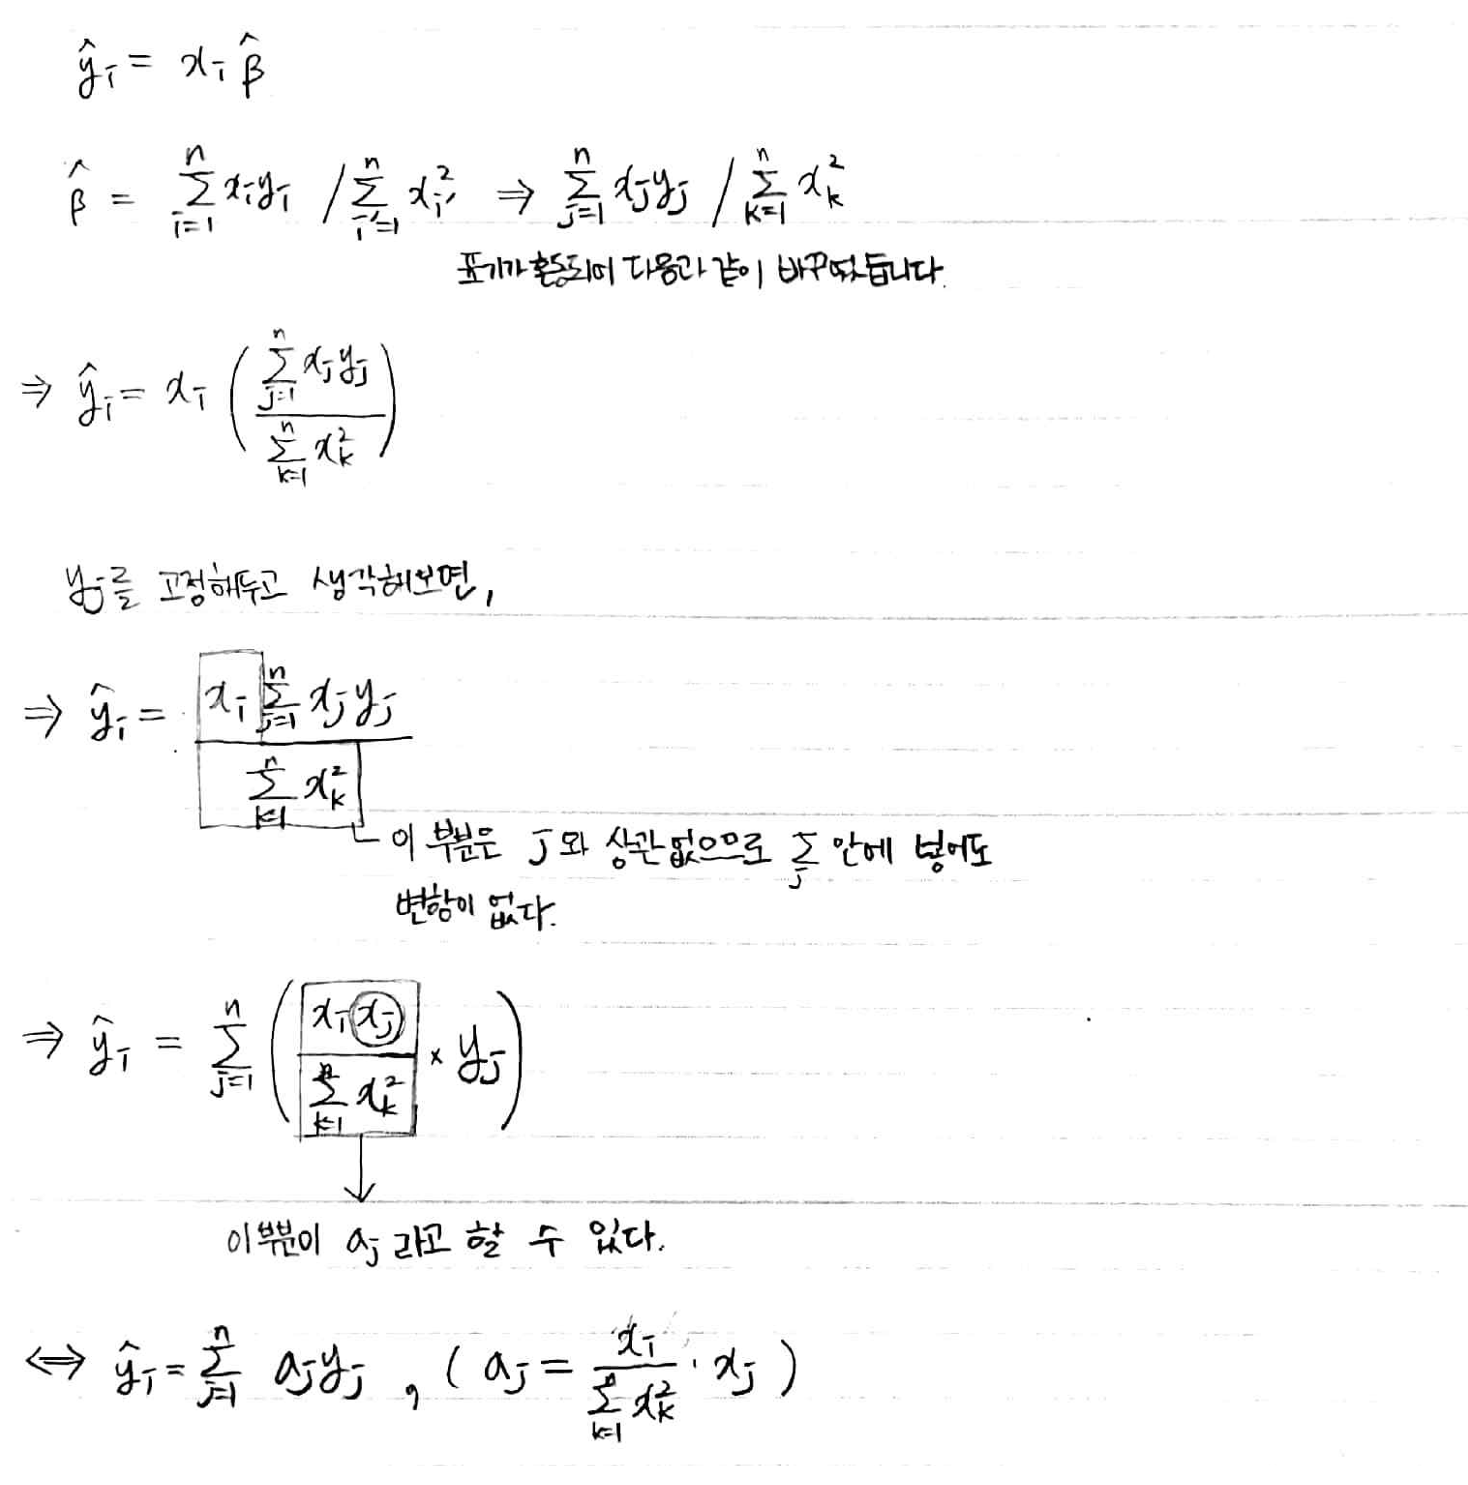 ŷᵢ = xᵢ β̂
β̂ = Σ_{i=1}^{n} xᵢyᵢ / Σ_{i'=1}^{n} x_{i'}² ⇒ Σ_{j=1}^{n} xⱼyⱼ / Σ_{k=1}^{n} xₖ²
표기가 혼동되어 다음과 같이 바꾸었습니다.
⇒ ŷᵢ = xᵢ ( Σ_{j=1}^{n} xⱼyⱼ / Σ_{k=1}^{n} xₖ² )
yⱼ를 고정해두고 생각해보면,
⇒ ŷᵢ = xᵢ Σ_{j=1}^{n} xⱼyⱼ / Σ_{k=1}^{n} xₖ²
이 부분은 j와 상관없으므로 Σⱼ 안에 넣어도
변함이 없다.
⇒ ŷᵢ = Σ_{j=1}^{n} ( xᵢxⱼ / Σ_{k=1}^{n} xₖ² × yⱼ )
이부분이 aⱼ 라고 할 수 있다.
⇔ ŷᵢ = Σ_{j=1}^{n} aⱼyⱼ , ( aⱼ = xᵢ / Σ_{k=1}^{n} xₖ² · xⱼ )